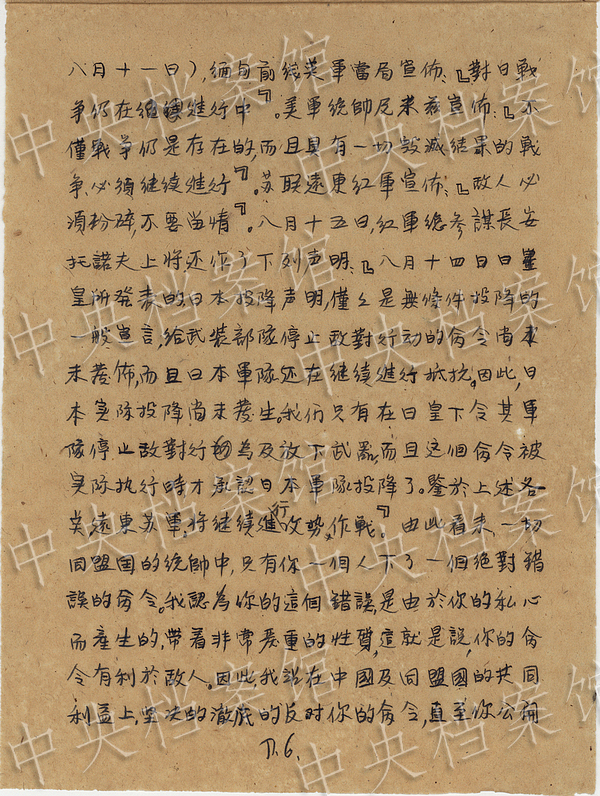 八月十一日），缅甸前线英軍當局宣佈：『對日戰
争仍在繼續進行中』。美軍統帥尼米兹宣佈：『不
僅戰争仍是存在的，而且具有一切毁滅結果的戰
争必須继续進行』。苏联遠東紅軍宣佈：『敌人必
須粉碎，不要留情』。八月十五日，紅軍總参謀長安
托諾夫上将还作了下列声明：『八月十四日日
皇所発表的日本投降声明，僅仅是無條件投降的
一般宣言，给武装部隊停止敌對行动的命令尚
未发佈，而且日本軍隊还在继续進行抵抗。因此，日
本实际投降尚未发生。我们只有在日皇下令其軍
隊停止敌對行为及放下武器，而且这個命令被
实际执行時才承認日本軍隊投降了。鑒於上述各
遠東苏軍，将继续進行攻勢作戰』。由此看来，一切
同盟国的统帥中，只有你一個人下了一個絕對錯
誤的命令。我認為你的這個錯誤，是由於你的私心
而產生的，带着非常严重的性質，這就是說，你的命
令有利於敌人。因此我站在中國及同盟國的共同
利益上，坚决的澈底的反对你的命令，直至你公開
P.6.
中央档案馆